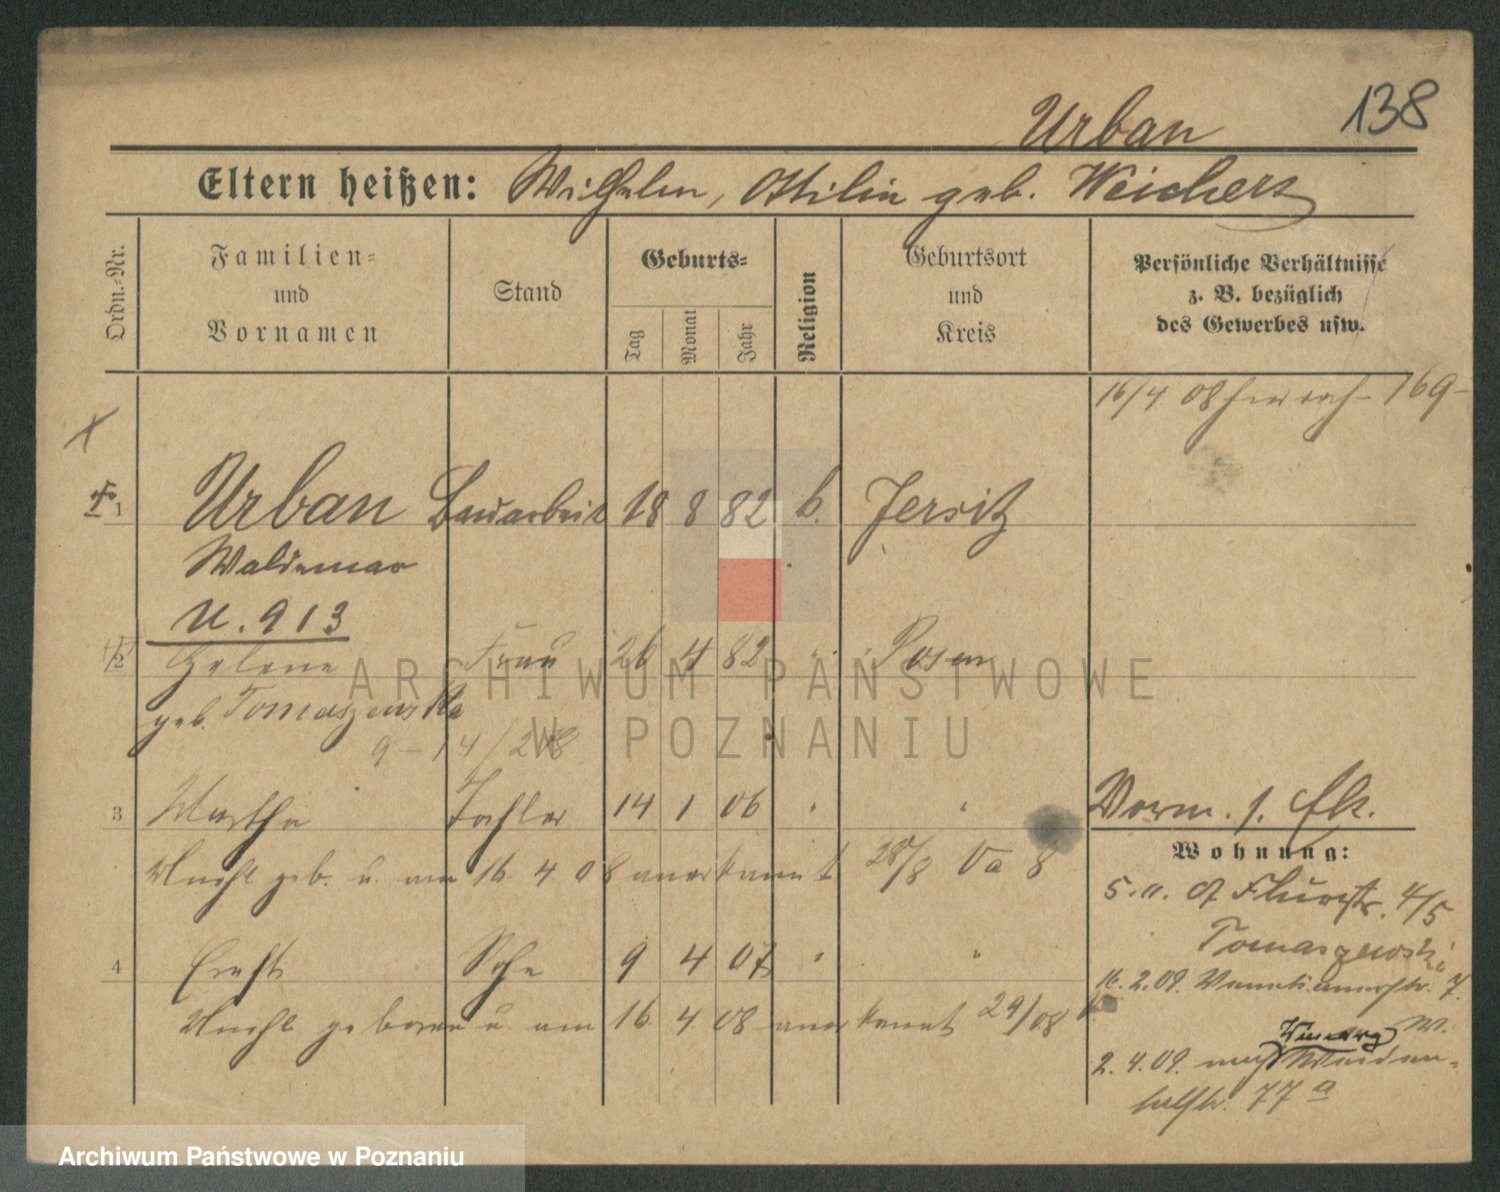 138
Urban
Eltern heißen: Wilhelm, Ottilie geb. Weichert
Ordn.-Nr.
Familien- und Vornamen
Stand
Geburts-
Tag
Monat
Jahr
Religion
Geburtsort und Kreis
Persönliche Verhältnisse z. B. bezüglich des Gewerbes usw.
16/4 08 169
1 Urban Bauarbeit 18 8 82 k. Jersitz
Waldemar
U. 913
2 Helene Frau 26 4 82 " Posen
geb. Tomaszewska
9-14/2 08
3 Martha Tochter 14 1 06 " "
Unehl. geb. u. am 16. 4 08 anerkannt 28/8 Va 8
4 Ernst Sohn 9 4 07 " "
Unehl geboren u. am 16 4 08 anerkannt 29/08
Vorm. 1. Ek.
Wohnung:
5. 11. Flurstr. 4/5
Tomaszewski
16. 2.09. Venetianerstr. 7.
W.
2. 4.09. nach Weiden-
77 a
ARCHIWUM PAŃSTWOWE
W POZNANIU
Archiwum Państwowe w Poznaniu